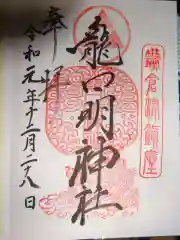 鎌倉深沢鎮座
龍口明神社
奉拝
令和元年十二月二十八日